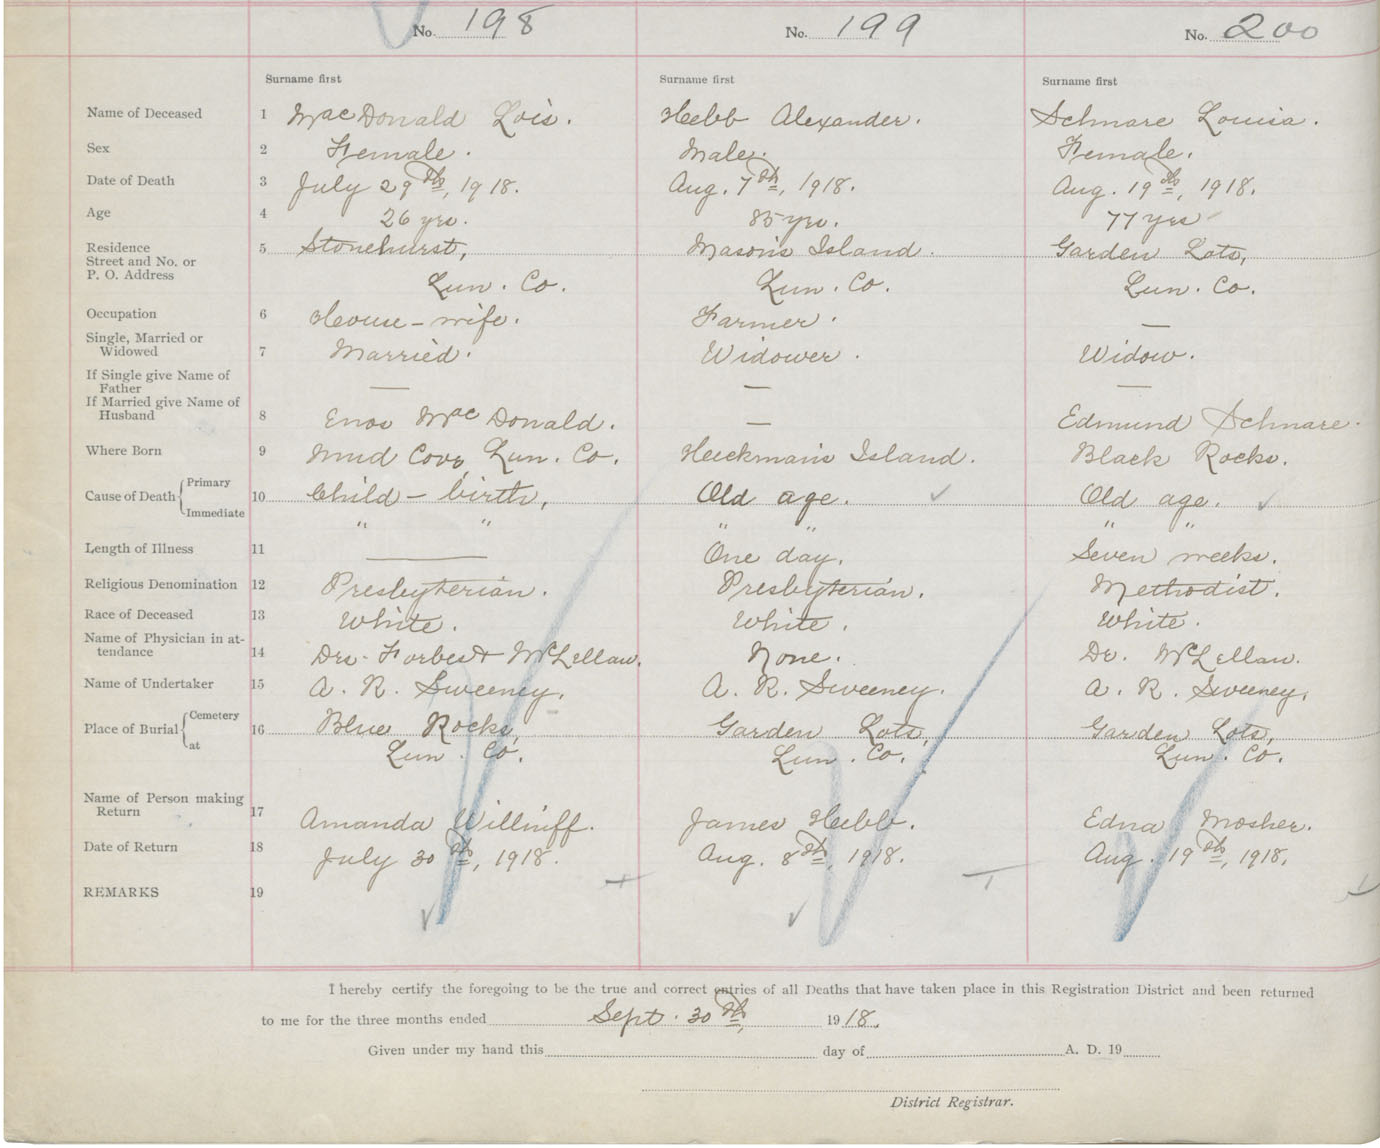 No. 198 No. 199 No. 200
Surname first Surname first Surname first
Name of Deceased 1 MacDonald Lois. Hebb Alexander. Schnare Louisa.
Sex 2 Female. Male. Female.
Date of Death 3 July 29th, 1918. Aug. 7th, 1918. Aug. 19th, 1918.
Age 4 26 yrs. 85 yrs. 77 yrs
Residence
Street and No. or 5 Stonehurst, Masons Island. Garden Lots,
P. O. Address Lun. Co. Lun. Co. Lun. Co.
Occupation 6 House-wife. Farmer. —
Single, Married or
Widowed 7 Married. Widower. Widow.
If Single give Name of
Father — — —
If Married give Name of
Husband 8 Enos MacDonald. — Edmund Schnare.
Where Born 9 Mud Cove, Lun. Co. Heckmans Island. Black Rocks.
Cause of Death { Primary 10 Child-birth, Old age. ✓ Old age. ✓
Immediate " " " " " "
Length of Illness 11 — One day. Seven weeks.
Religious Denomination 12 Presbyterian. Presbyterian. Methodist.
Race of Deceased 13 White. White. White.
Name of Physician in at-
tendance 14 Drs. Forbes & McLellan. None. Dr. McLellan.
Name of Undertaker 15 A. R. Sweeney. A. R. Sweeney. A. R. Sweeney.
Place of Burial { Cemetery 16 Blue Rocks, Garden Lots, Garden Lots,
at Lun. Co. Lun. Co. Lun. Co.
Name of Person making
Return 17 Amanda James Hebb. Edna Mosher.
Date of Return 18 July 30th, 1918. Aug. 8th, 1918. Aug. 19th, 1918.
REMARKS 19
I hereby certify the foregoing to be the true and correct entries of all Deaths that have taken place in this Registration District and been returned
to me for the three months ended Sept. 30th, 1918.
Given under my hand this day of A. D. 19
District Registrar.